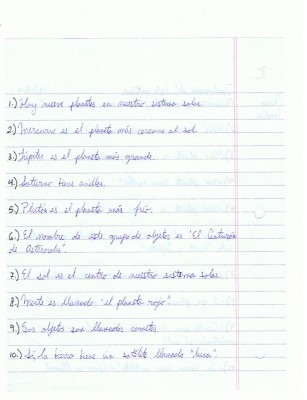 1.) Hay nueve planetas en nuestro sistema solar.
2.) Mercurio es el planeta más cercano al sol.
3.) Júpiter es el planeta más grande.
4.) Saturno tiene anillos.
5.) Plutón es el planeta más frío.
6.) El nombre de este grupo de objetos es "El Cinturón
de Asteroides".
7.) El sol es el centro de nuestro sistema solar.
8.) Marte es llamado "el planeta rojo".
9.) Esos objetos son llamados cometas
10.) Sí, la tierra tiene un satélite llamado "luna".